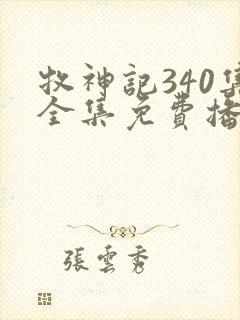 牧神記340集
全集免費播
張雲秀